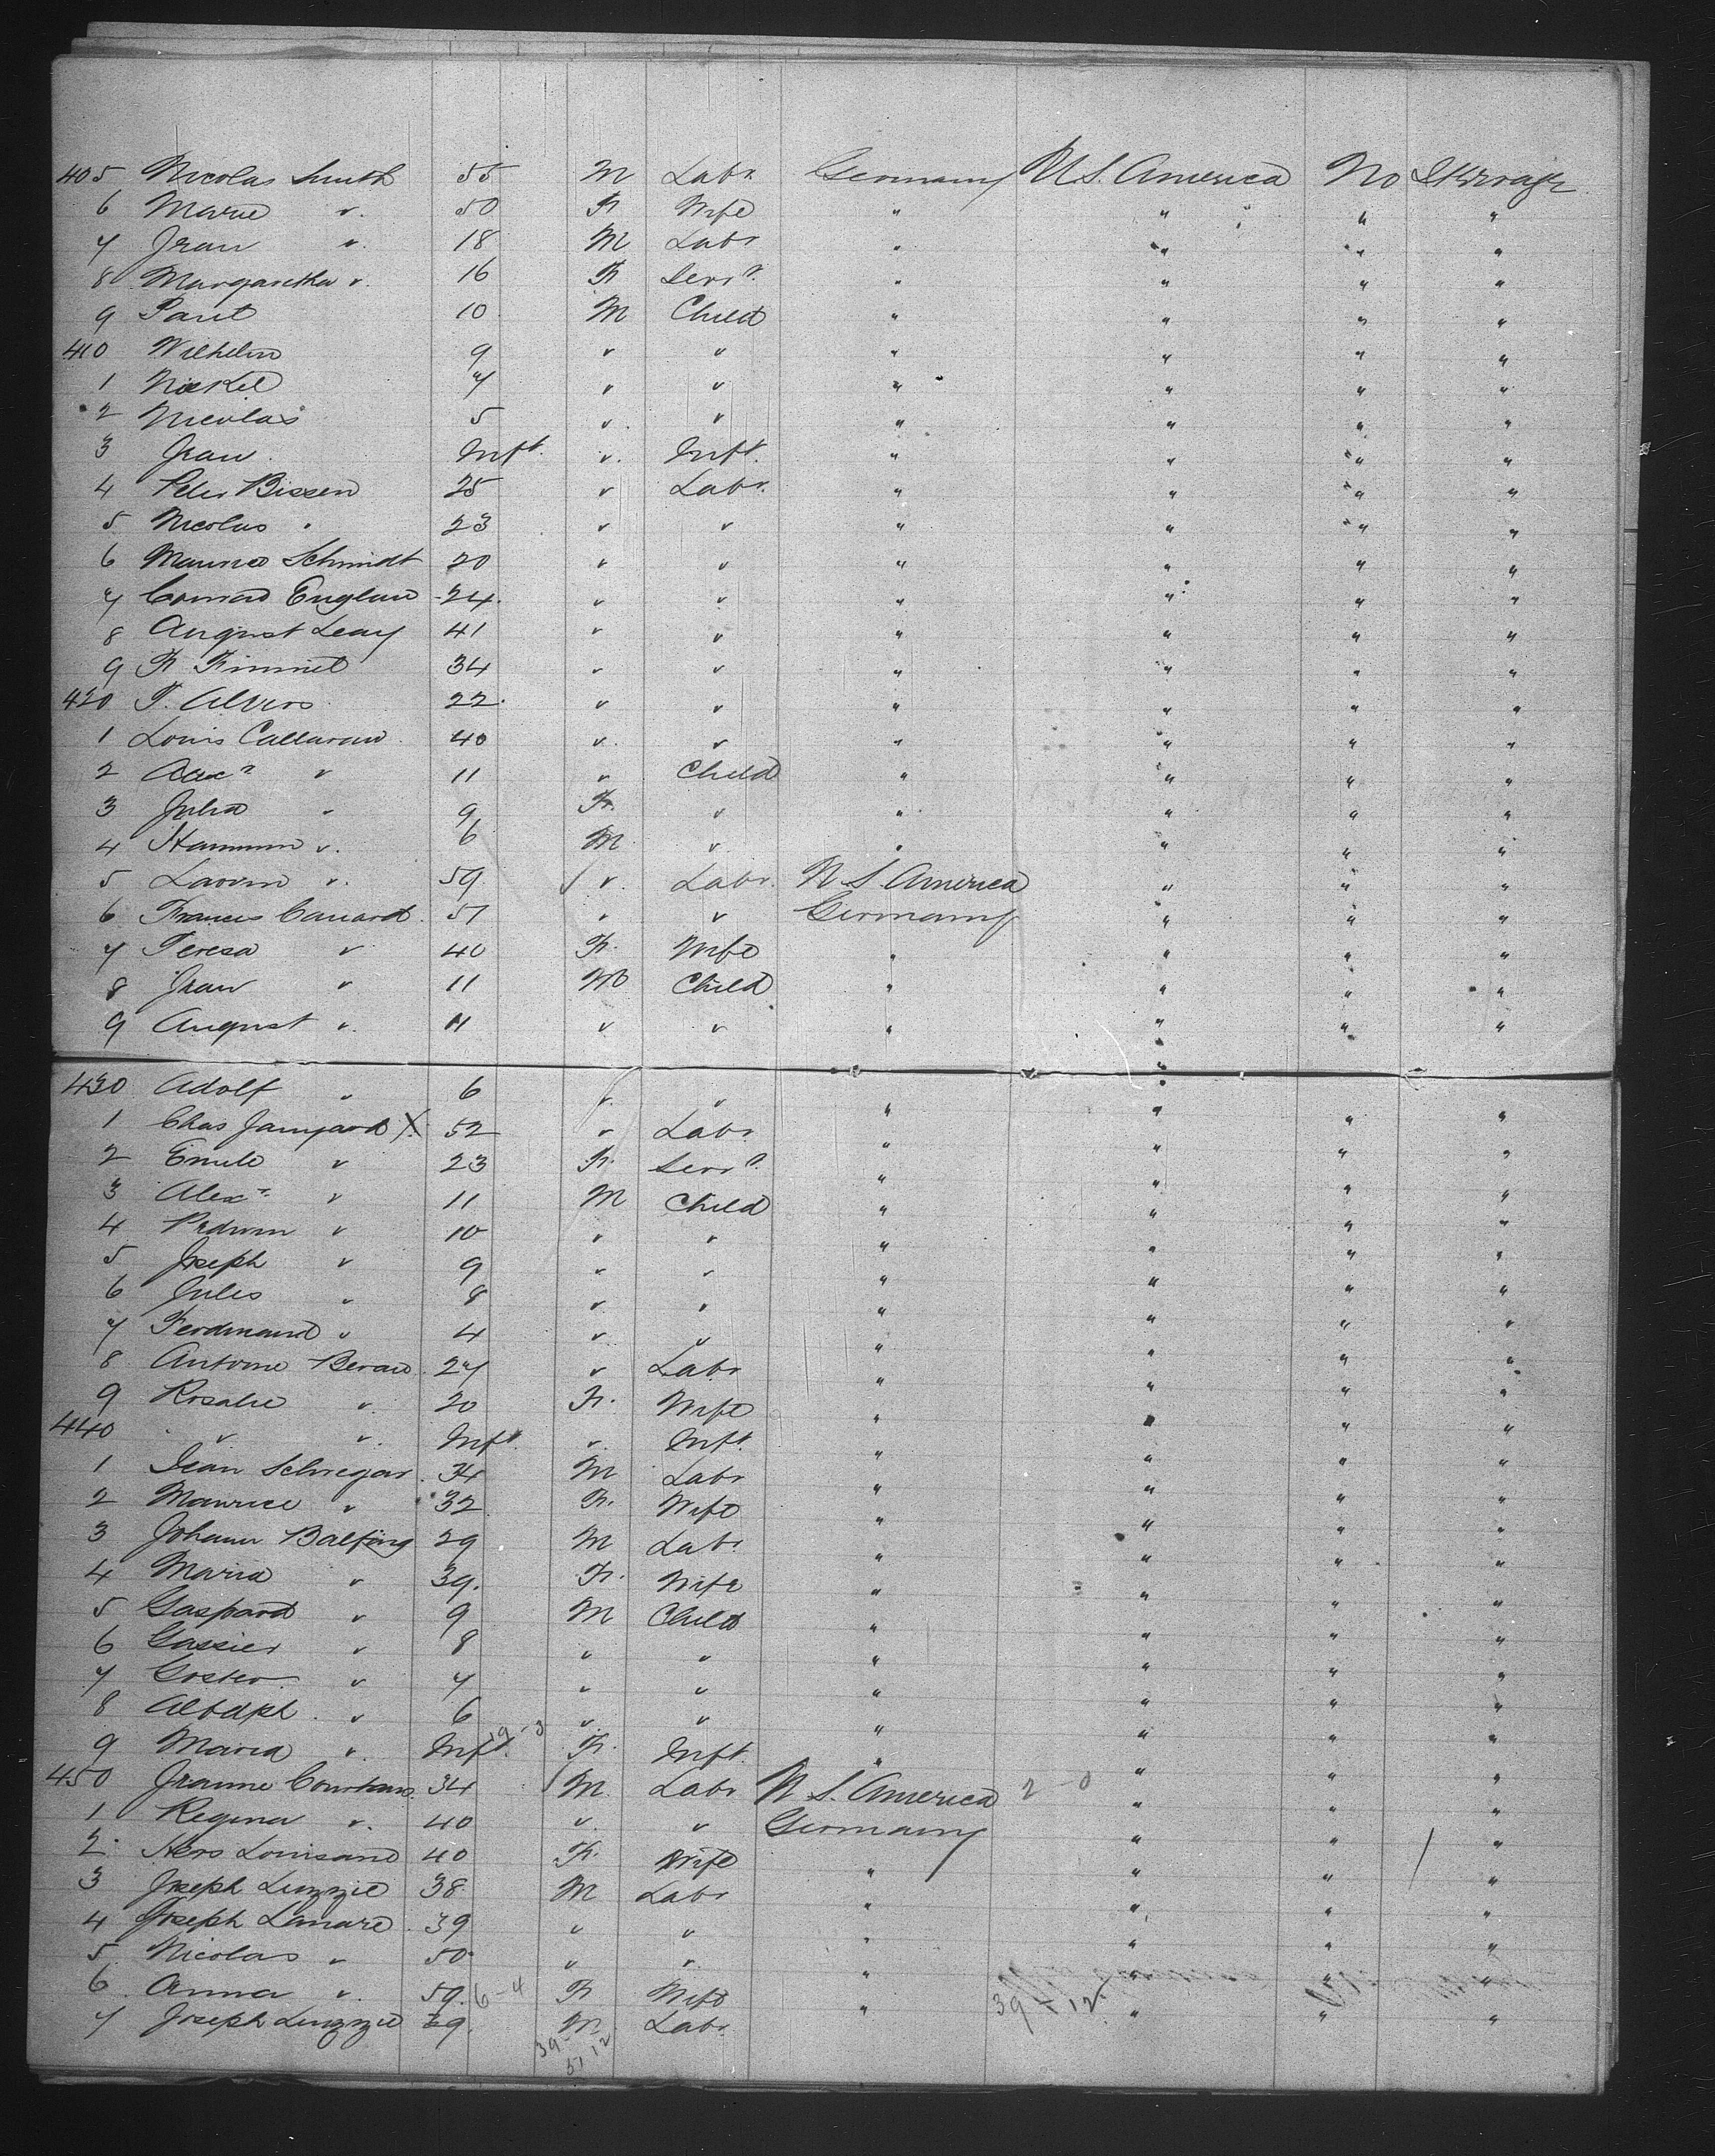 405 Nicolas Smith 55 M Labr Germany U.S. America No Steerage
6 Marie " 50 F Wife " " " "
7 Jean " 18 M Labr " " " "
8 Margaretha " 16 F Servt " " " "
9 10 M Child " " " "
410 Wilhelm 9 " " " " " "
1 Nickel 7 " " " " " "
2 Nicolas 5 " " " " " "
3 Jean Inft " Inft " " " "
4 Peter Bissen 25 " Labr " " " "
5 Nicolas " 23 " " " " " "
6 Schmidt 20 " " " " " "
7 Conrad 24 " " " " " "
8 August Leay 41 " " " " " "
9 F. 34 " " " " " "
420 22 " " " " " "
1 Louis 40 " " " " " "
2 Alexr " 11 " Child " " " "
3 Julia " 9 F " " " " "
4 " 6 M " " " " "
5 " 59 " Labr U.S. America " " "
6 Francis Canard 51 " " Germany " " "
7 Teresa " 40 F Wife " " " "
8 Jean " 11 M Child " " " "
9 August " 11 " " " " " "
430 Adolf " 6 " " " " " "
1 Chas X 52 " Labr " " " "
2 Emile " 23 F Servt " " " "
3 Alexr " 11 M Child " " " "
4 " 10 " " " " " "
5 Joseph " 9 " " " " " "
6 Jules " 8 " " " " " "
7 Ferdinand " 4 " " " " " "
8 Antoine 27 " Labr " " " "
9 Rosalie " 20 F Wife " " " "
440 " " Inft " Inft " " " "
1 Jean Schregar 34 M Labr " " " "
2 Maurice " 32 F Wife " " " "
3 Johann Balfing 29 M Labr " " " "
4 Maria " 39 F Wife " " " "
5 Gaspard " 9 M Child " " " "
6 Gassier " 8 " " " " " "
7 " 7 " " " " " "
8 " 6 " " " " " "
9 Maria " Inft F Inft " " " "
450 Jeanne 34 M Labr U.S. America 2-0 " " "
1 Regina " 40 " " Germany " " "
2 40 F Wife " " " "
3 Joseph Luzzie 38 M Labr " " " "
4 Joseph Lanare 39 " " " " " "
5 Nicolas " 50 " " " " " "
6 Anna " 59 6-4 F Wife " 39-12 " " "
7 Joseph Luzzie 39 M Labr " " " "
39-12
51